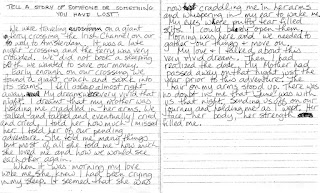 TELL A STORY OF SOMEONE OR SOMETHING
YOU HAVE LOST
We were travelling on a giant
ferry crossing The Irish Channel on our
way to Amsterdam. It was a late
night crossing and the ferry was very
crowded. We did not book a sleeping
as we wanted to save our money.
early on our crossing we
found a quiet and sunk into
its seams. I fell asleep almost right
away. My dreams were vivid that
night. I dreamt that my mother was
holding me cradled in her arms. We
talked and talked and eventually cried
and cried, I told her how much I missed
her. I told her of our pending
adventure. She told me many things
but most of all she told me how much
she loved me and how we would see
each other again.
When it was morning my love
woke me, she knew I had been crying
in my sleep. It seemed that she was
now cradling me in her arms
and whispering in my ear to wake me.
My eyes were puffy tear filled
slits. I could barely open them.
Morning was here and we needed to
gather our things & move on.
My love & I talked about this
very vivid dream. Then I had
realized the date. My Mother had
passed away on that night just the
year prior to this adventure. The
hair on my arms stood up. There was
no doubt in me that she was with
us that night, sending us off on our
journey and holding me as I wept. Her
face, her body, her strength
filled me.